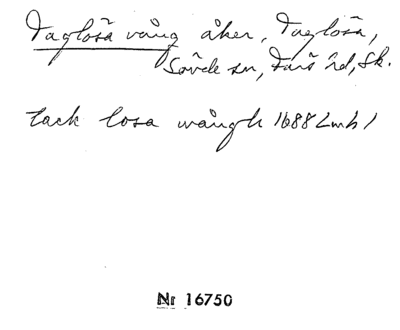 Taglösa vång åker, Taglösa,
Sövde sn, Färs hd, Sk.
tack losa wångh 1688 Lmh 1
Nr 16750